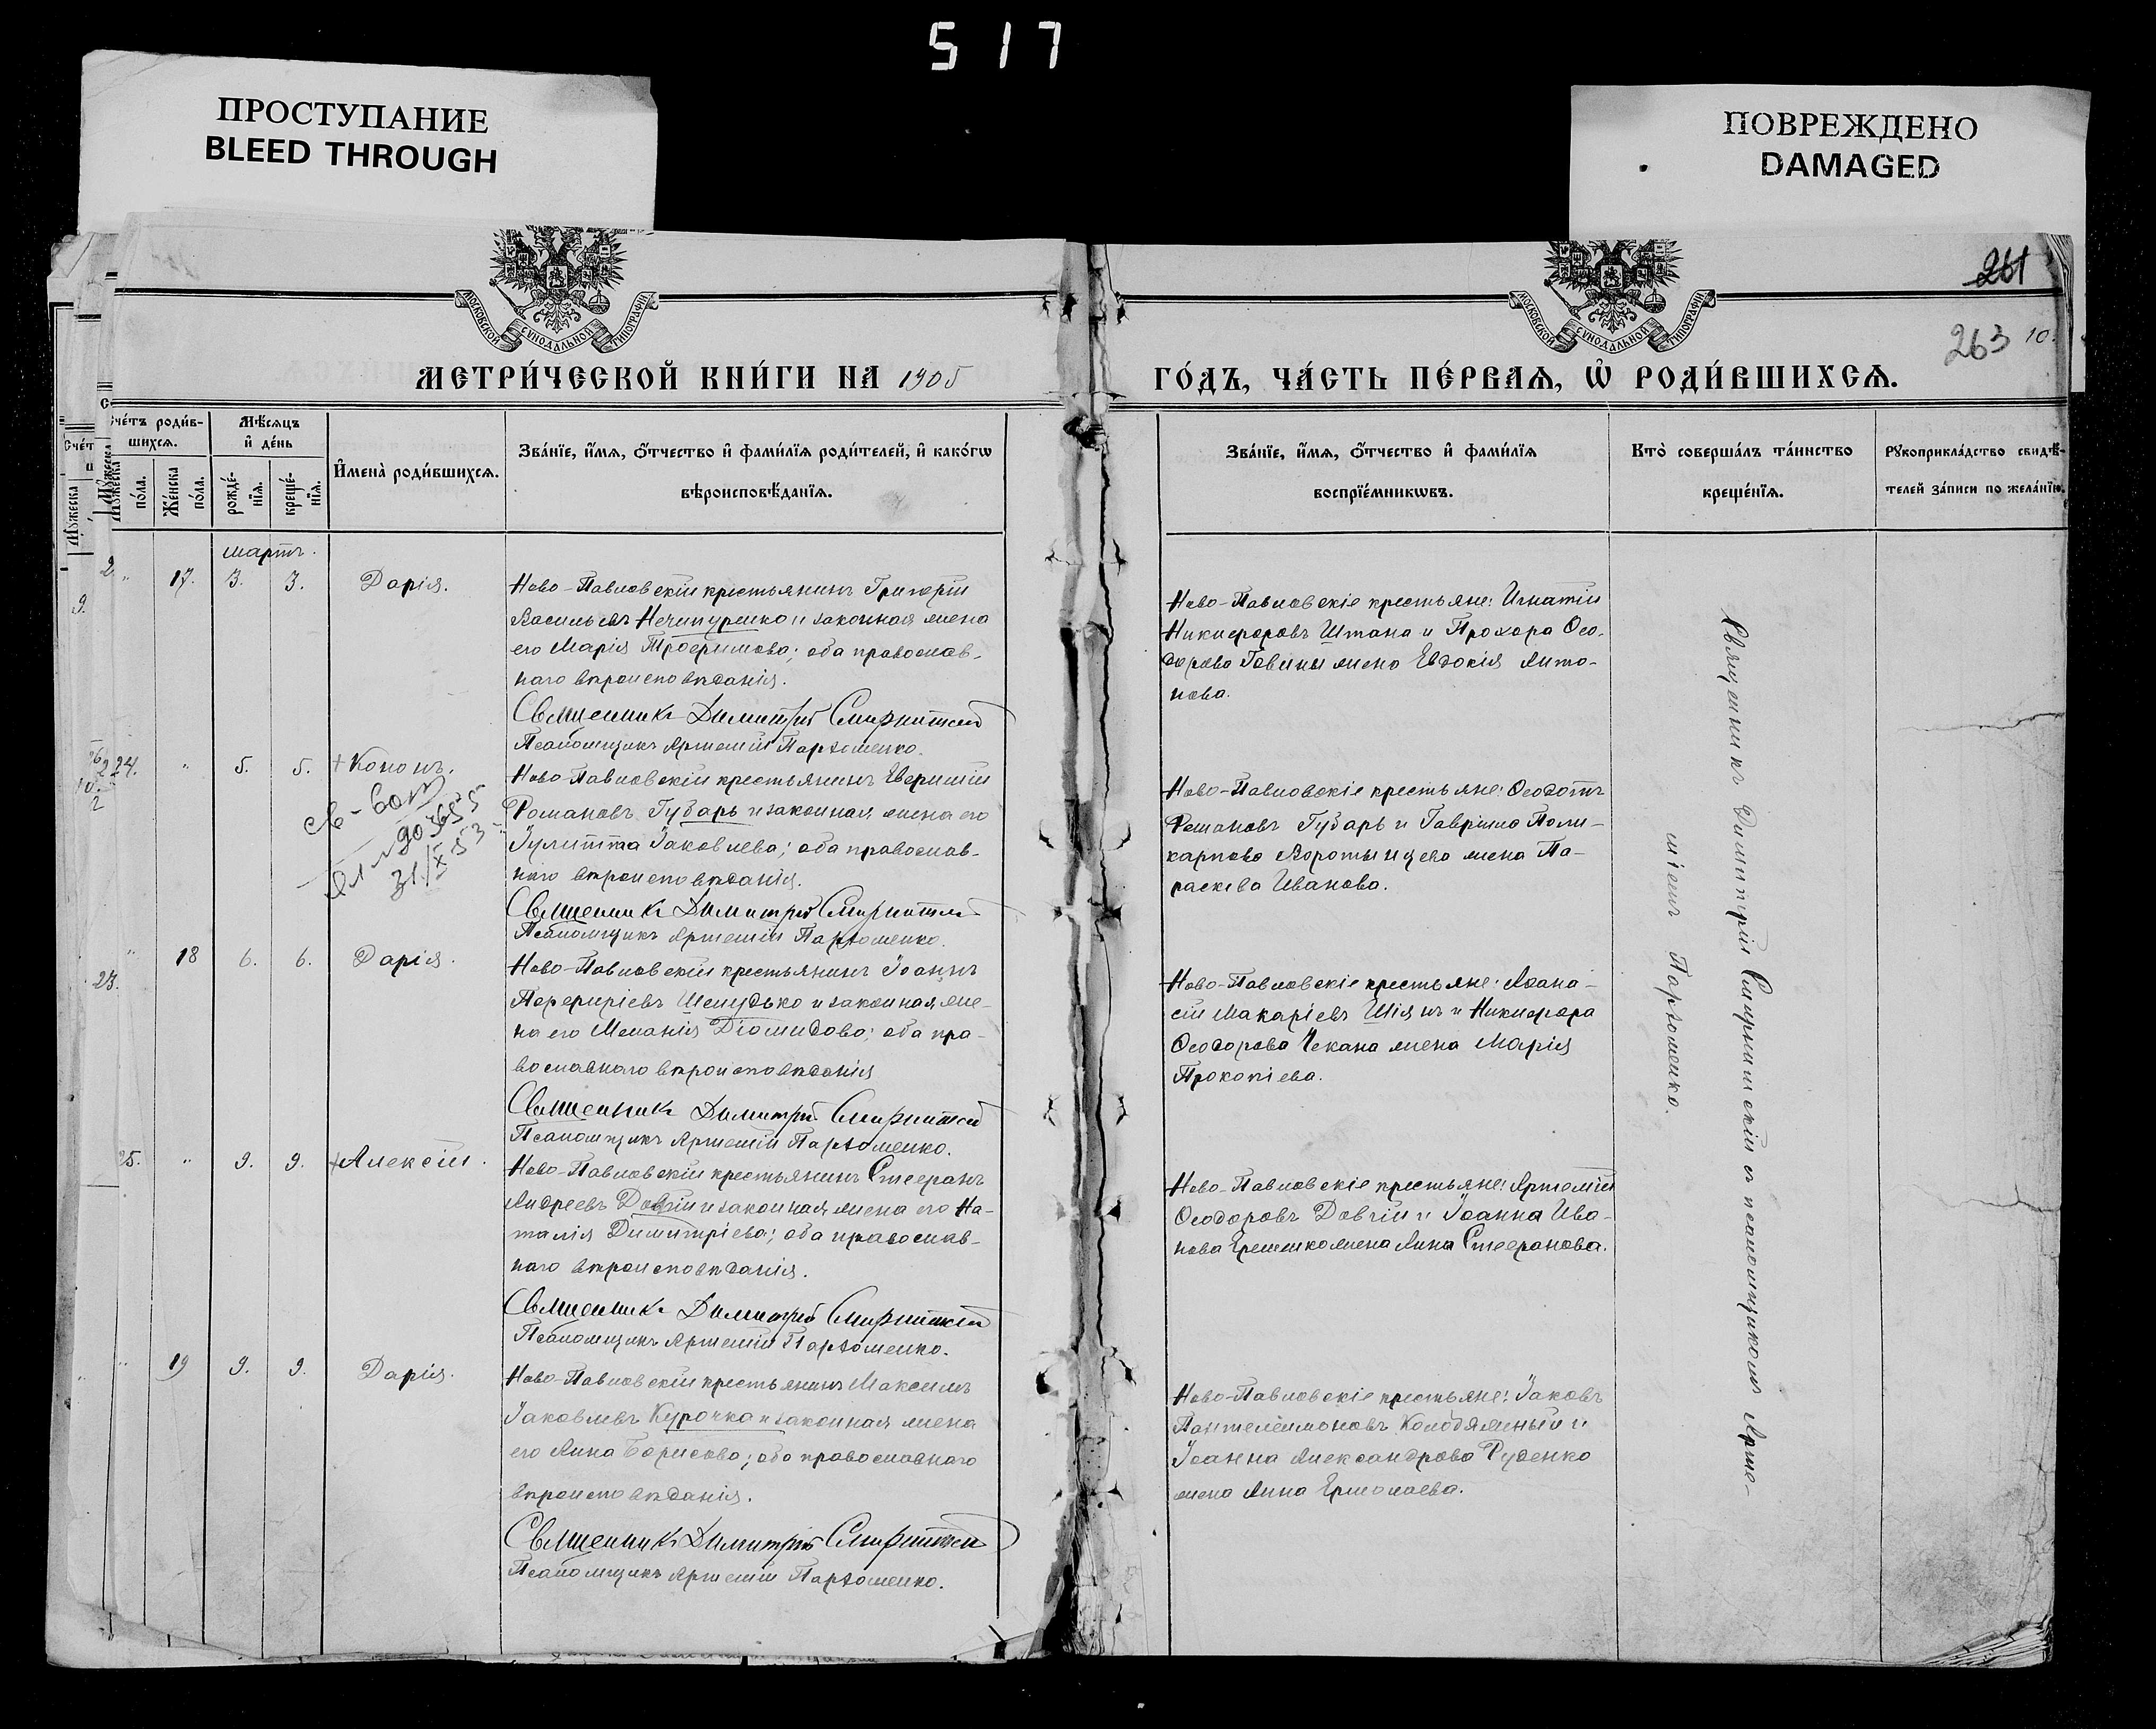 517
ПРОСТУПАНИЕ
BLEED THROUGH
ПОВРЕЖДЕНО
DAMAGED
МОСКОВСКОЙ СѴНОДАЛЬНОЙ ТИПОГРАФІИ
МОСКОВСКОЙ СѴНОДАЛЬНОЙ ТИПОГРАФІИ
261
263 10.
МЕТРИ́ЧЕСКОЙ КНИ́ГИ НА 1905
ГО́ДЪ, ЧА́СТЬ ПЕ́РВАЯ, Ѡ РОДИ́ВШИХСЯ.
Сче́тъ роди́в-
шихся.
Мѣ́сяцъ
и҆ де́нь
Мꙋ́жеска
по́ла.
Же́нска
по́ла.
рожде́-
нїя.
креще́-
нїя.
И҆мена̀ роди́вшихся.
Зва́нїе, и҆́мя, ѻ҆́тчество и҆ фами́лїя роди́телей, и҆ како́гѡ
вѣроисповѣ́данїя.
Зва́нїе, и҆́мя, ѻ҆́тчество и҆ фами́лїя
воспрїе́мникѡвъ.
Кто̀ соверша́лъ та́инство
креще́нїя.
Рꙋкоприкла́дство свидѣ́-
телей за́писи по жела́нїю.
мартъ.
" 17. 3. 3. Дарія.
Ново-Павловскій крестьянинъ Григорій
Васильевъ Нечипуренко и законная жена
его Марія Трофимова; оба православ-
наго вѣроисповѣданія.
Священникъ Димитрій Смирнитскій
Псаломщикъ Артемій Пархоменко.
Ново-Павловскіе крестьяне: Игнатій
Никифоровъ Штана и Прохора Ѳео-
дорова Говины жена Евдокія Анто-
нова.
24. " 5. 5. +Кононъ.
31/X 53
Ново-Павловскій крестьянинъ Евфимій
Романовъ Губарь и законная жена его
Іулитта Іаковлева; оба православ-
наго вѣроисповѣданія.
Священникъ Димитрій Смирнитскій
Псаломщикъ Артемій Пархоменко.
Ново-Павловскіе крестьяне: Ѳеодотъ
Романовъ Губарь и Гавріила Поли-
карпова Воротынцева жена Па-
раскева Иванова.
" 18 6. 6. Дарія.
Ново-Павловскій крестьянинъ Іоаннъ
Порфиріевъ Шелудько и законная же-
на его Меланія Діомидова; оба пра-
вославнаго вѣроисповѣданія
Священникъ Димитрій Смирнитскій
Псаломщикъ Артемій Пархоменко.
Ново-Павловскіе крестьяне: Аѳана-
сій Макаріевъ Шіянъ и Никифора
Ѳеодорова Чекана жена Марія
Прокопіева.
25. " 9. 9. +Алексій.
Ново-Павловскій крестьянинъ Стефанъ
Андреевъ Довгій и законная жена его На-
талія Димитріева; оба православ-
наго вѣроисповѣданія.
Священникъ Димитрій Смирнитскій
Псаломщикъ Артемій Пархоменко.
Ново-Павловскіе крестьяне: Артемій
Ѳеодоровъ Довгій и Іоанна Ива-
нова жена Анна Стефанова.
" 19 9. 9. Дарія.
Ново-Павловскій крестьянинъ Максимъ
Іаковлевъ Курочка и законная жена
его Анна Борисова; оба православнаго
вѣроисповѣданія.
Священникъ Димитрій Смирнитскій
Псаломщикъ Артемій Пархоменко.
Ново-Павловскіе крестьяне: Іаковъ
Пантелеимоновъ Колодяжный и
Іоанна Александрова Руденко
жена Анна Ермолаева.
Священникъ Димитрій Смирнитскій съ псаломщикомъ Арте-
міемъ Пархоменко.